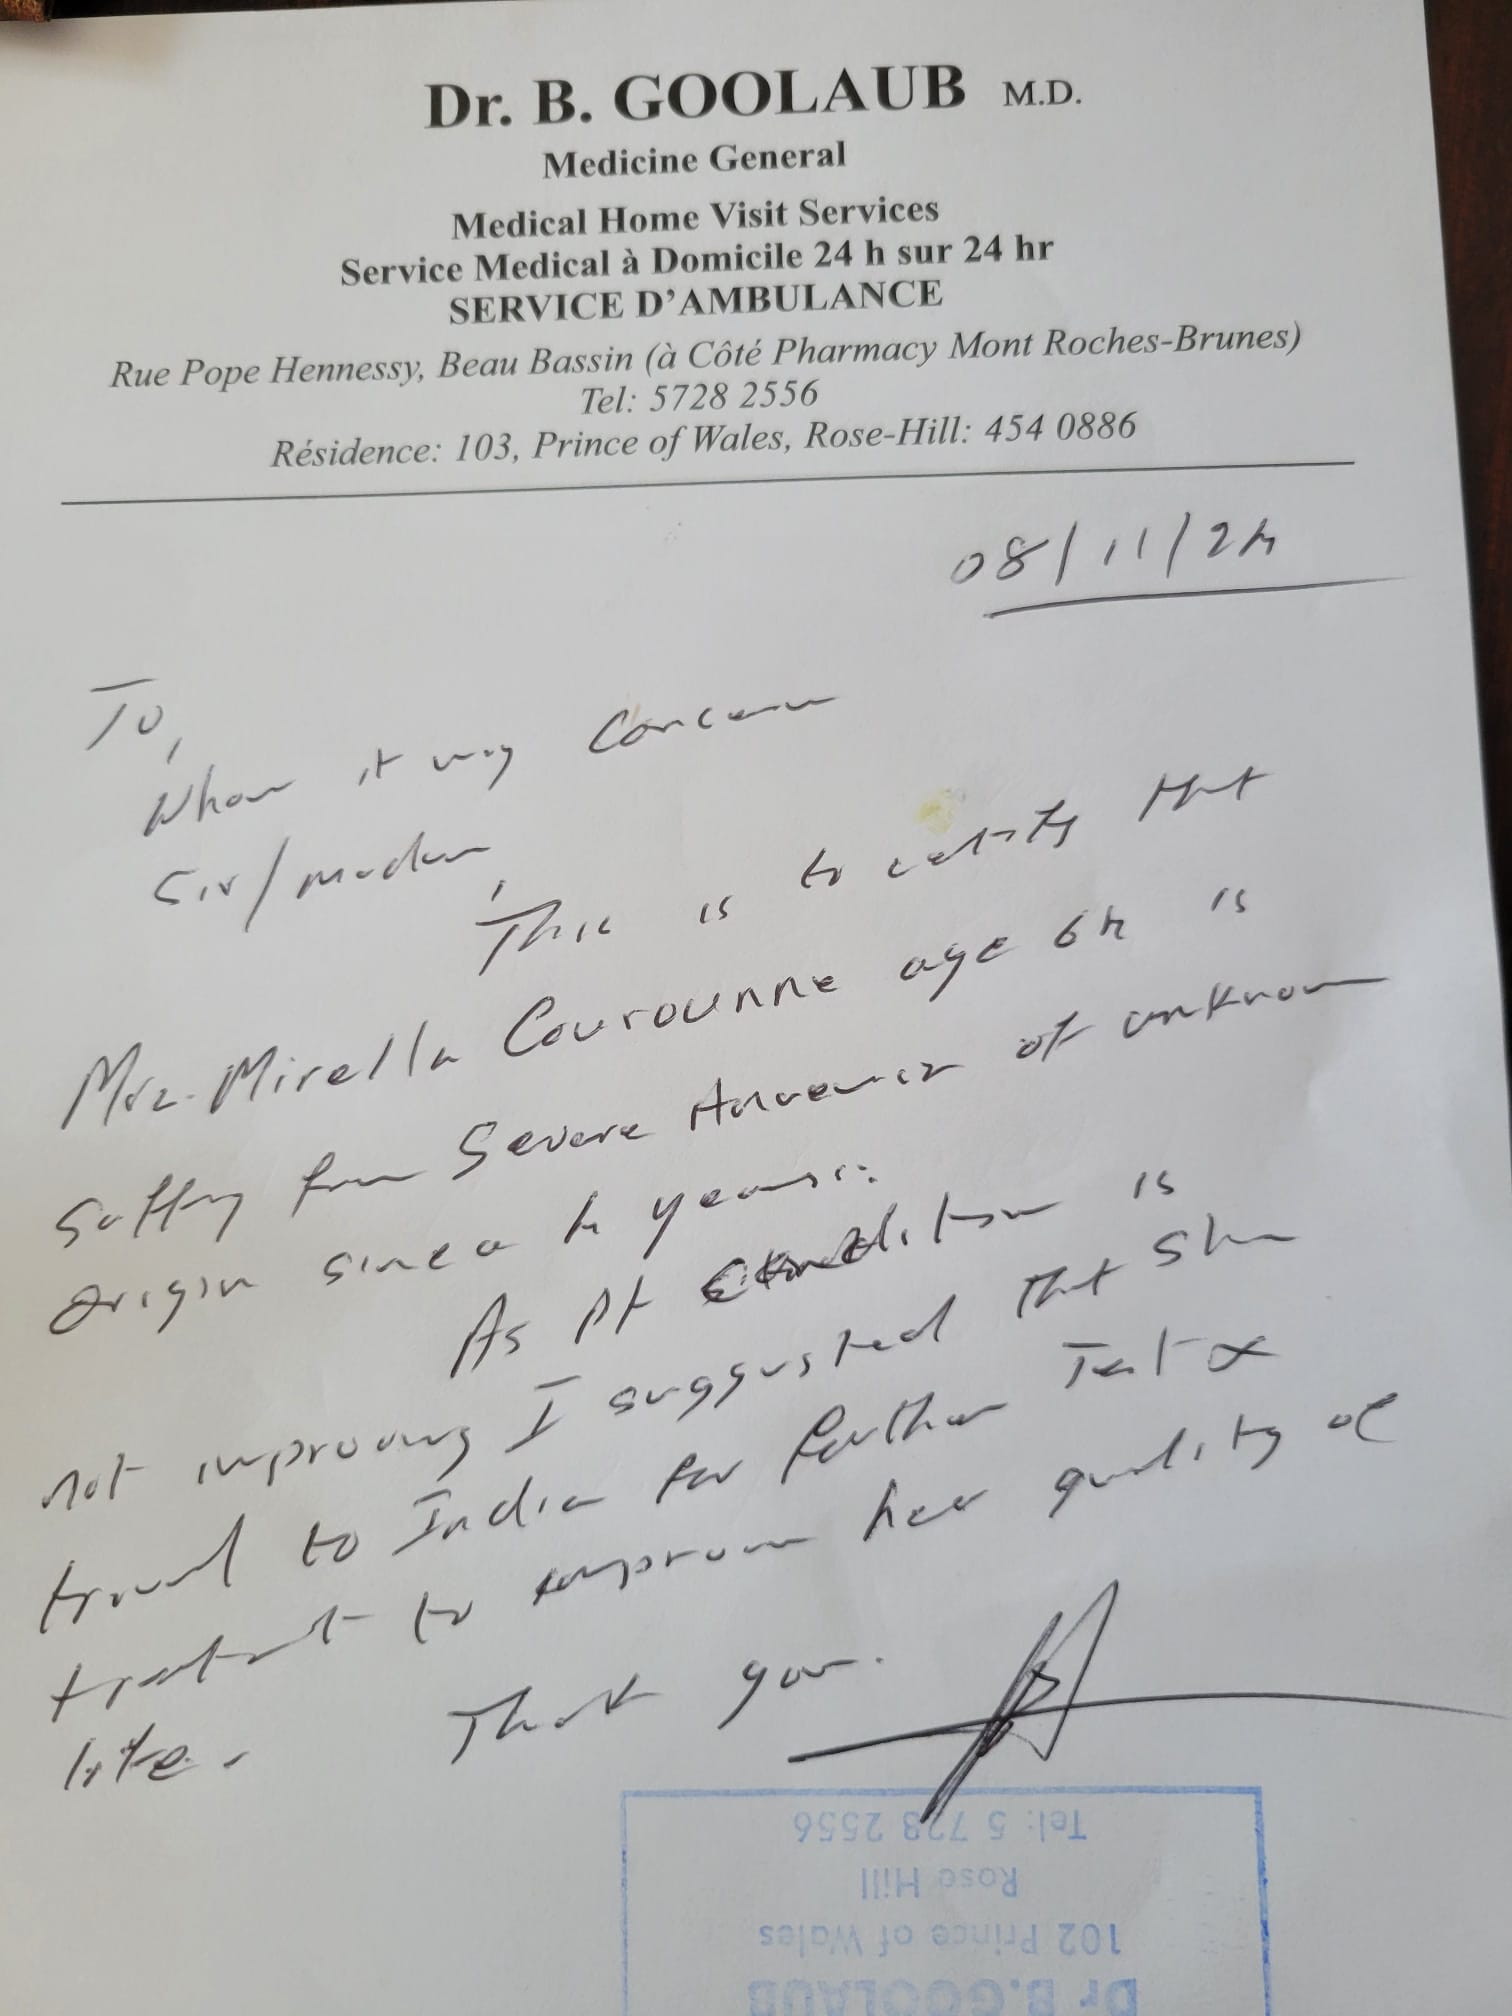 Dr. B. GOOLAUB M.D.
Medicine General
Medical Home Visit Services
Service Medical à Domicile 24 h sur 24 hr
SERVICE D'AMBULANCE
Rue Pope Hennessy, Beau Bassin (à Côté Pharmacy Mont Roches-Brunes)
Tel: 5728 2556
Résidence: 103, Prince of Wales, Rose-Hill: 454 0886
08/11/24
To,
Whom it may Concern
Sir/madam,
This is to certify that
Mrs. Mirella Courounne age 64 is
suffering from Severe Anaemia of unknown
origin since 4 years.
As pt condition is
not improving I suggusted that she
travel to India for further Test &
treatment to improve her quality of
life.
Thank you.
Dr B.GOOLAUB
102 Prince of Wales
Rose Hill
Tel: 5 728 2556